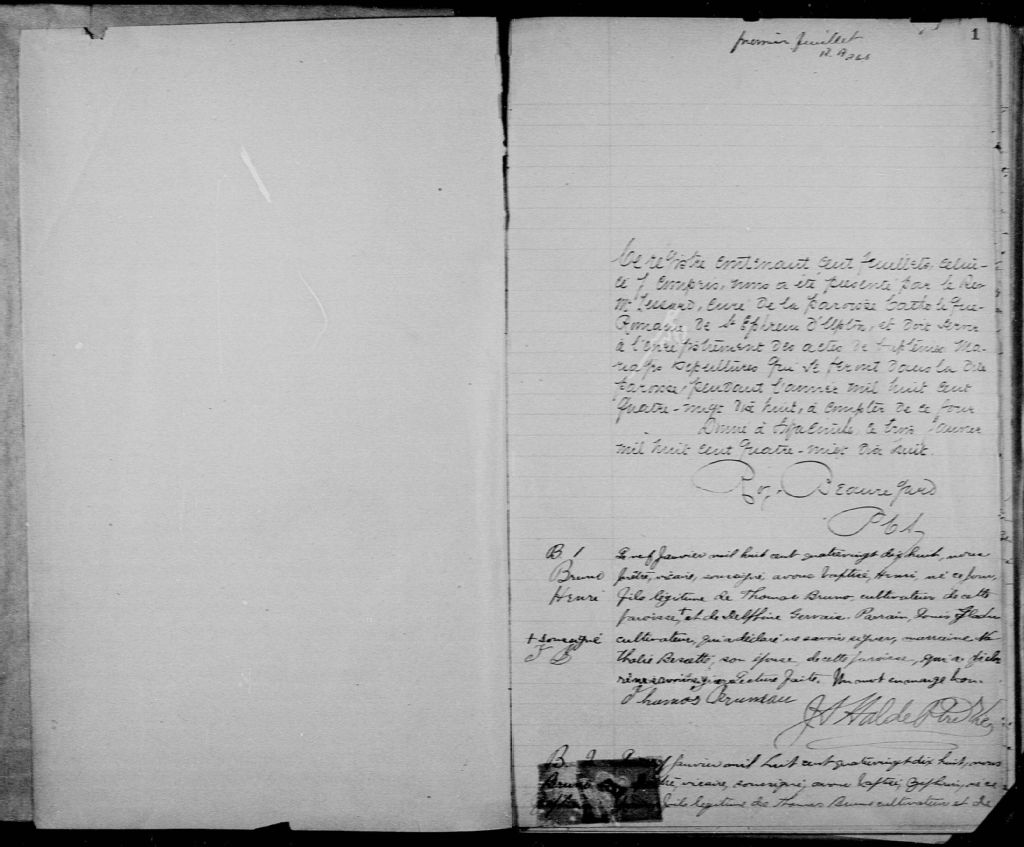 premier feuillet
1
Ce registre contenant cent feuillets, celui-
ci y compris, nous a été présenté par le Rev
Mr Lessard, curé de la paroisse Catholique
Romaine de St Ephrem d'Upton, et doit servir
à l'enregistrement des actes de Baptêmes Ma-
riages Sépultures qui se feront dans la dite
paroisse, pendant l'année mil huit cent
quatre-vingt dix huit, à compter de ce jour
Donné à St Hyacinthe, ce trois Janvier
mil huit cent quatre-vingt dix huit.
Beauregard
P C S
B 1
Bruno
Henri
+ soussigné
Le neuf Janvier mil huit cent quatrevingt dix huit, nous
prêtre, vicaire, soussigné, avons baptisé, Henri, né ce jour,
fils légitime de Thomas Bruno, cultivateur de cette
paroisse, + et de Delphine Gervais. Parrain, Louis
cultivateur, qui a déclaré ne savoir signer, marraine Na
thalie Bessette, son épouse de cette paroisse, qui a décla
Lecture faite. Un mot en marge bon.
Thomas Bruneau
B. 2
Bruno
Le neuf Janvier mil huit cent quatrevingt dix huit, nous
prêtre, vicaire, soussigné, avons baptisé, né ce
fils légitime de Thomas Bruno cultivateur et de